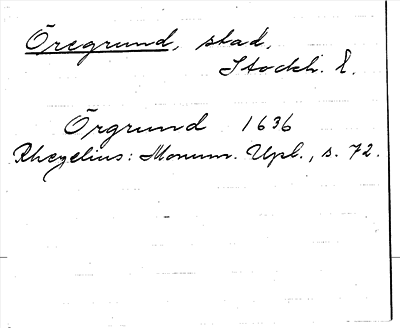 Öregrund, stad,
Stockh. l.
Örgrund 1636
Rhezelius: Monum. Upl., s. 72.